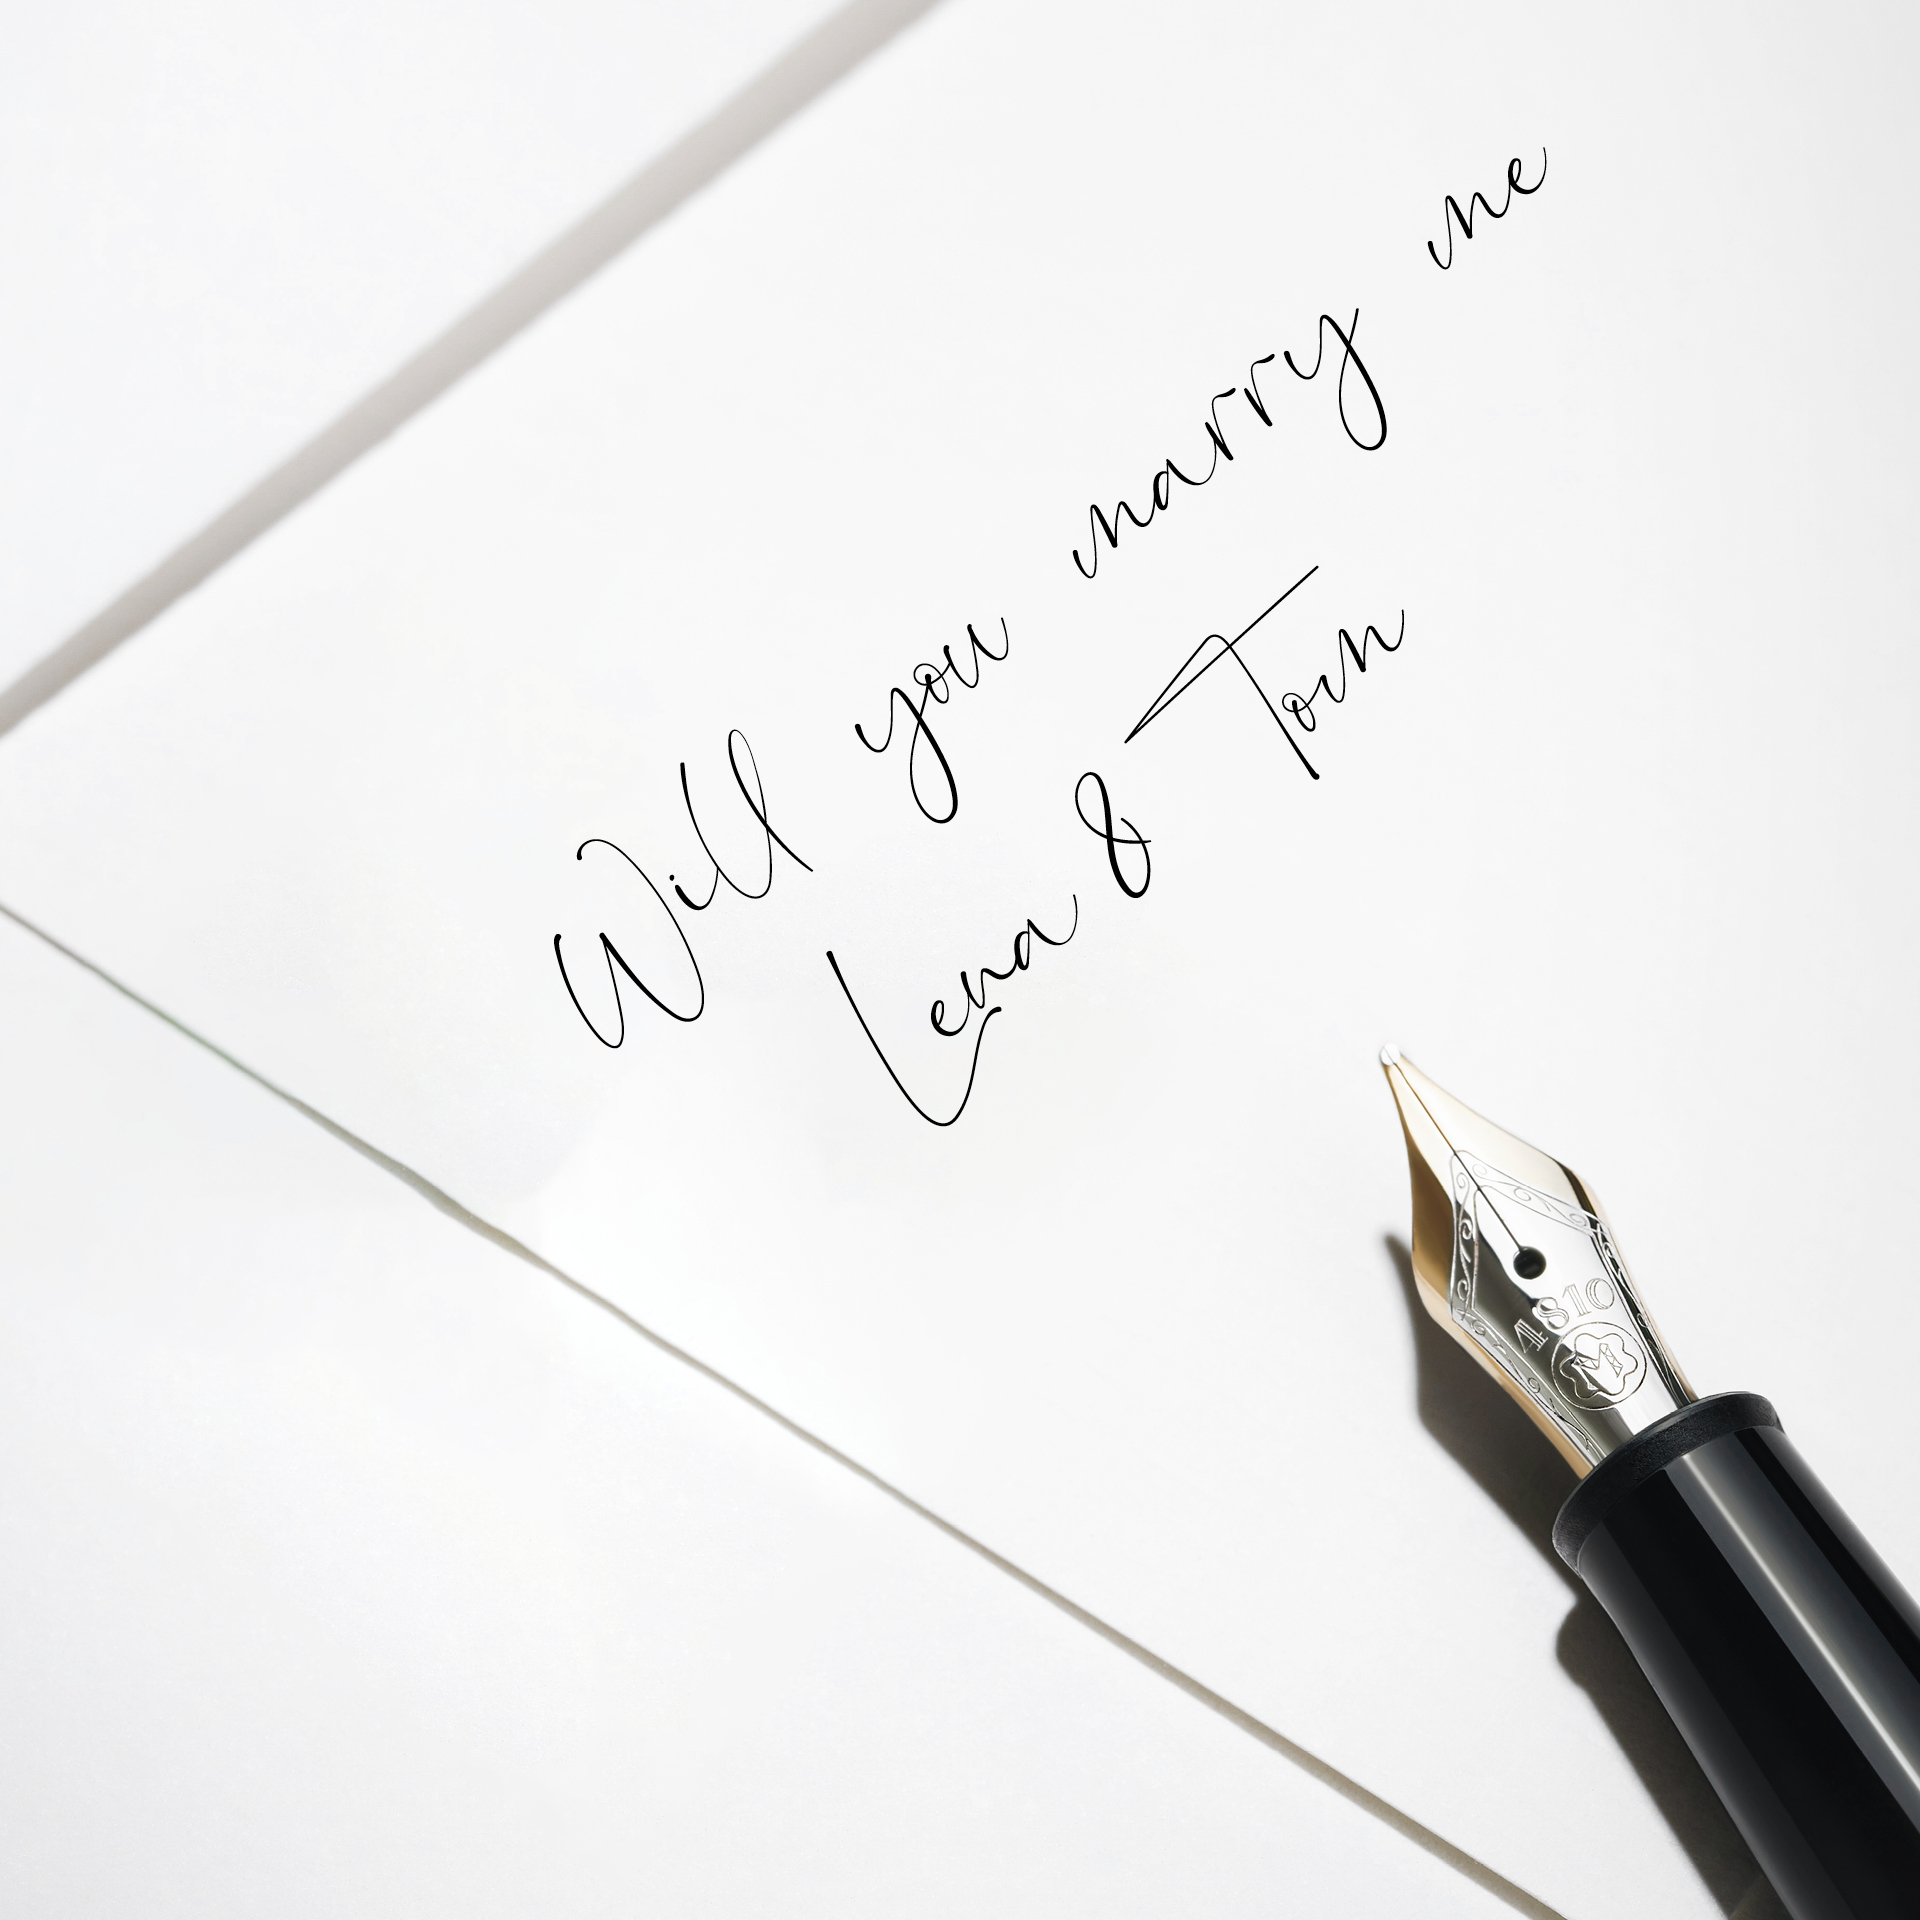 Will you marry me
Lena & Tom
4810
M